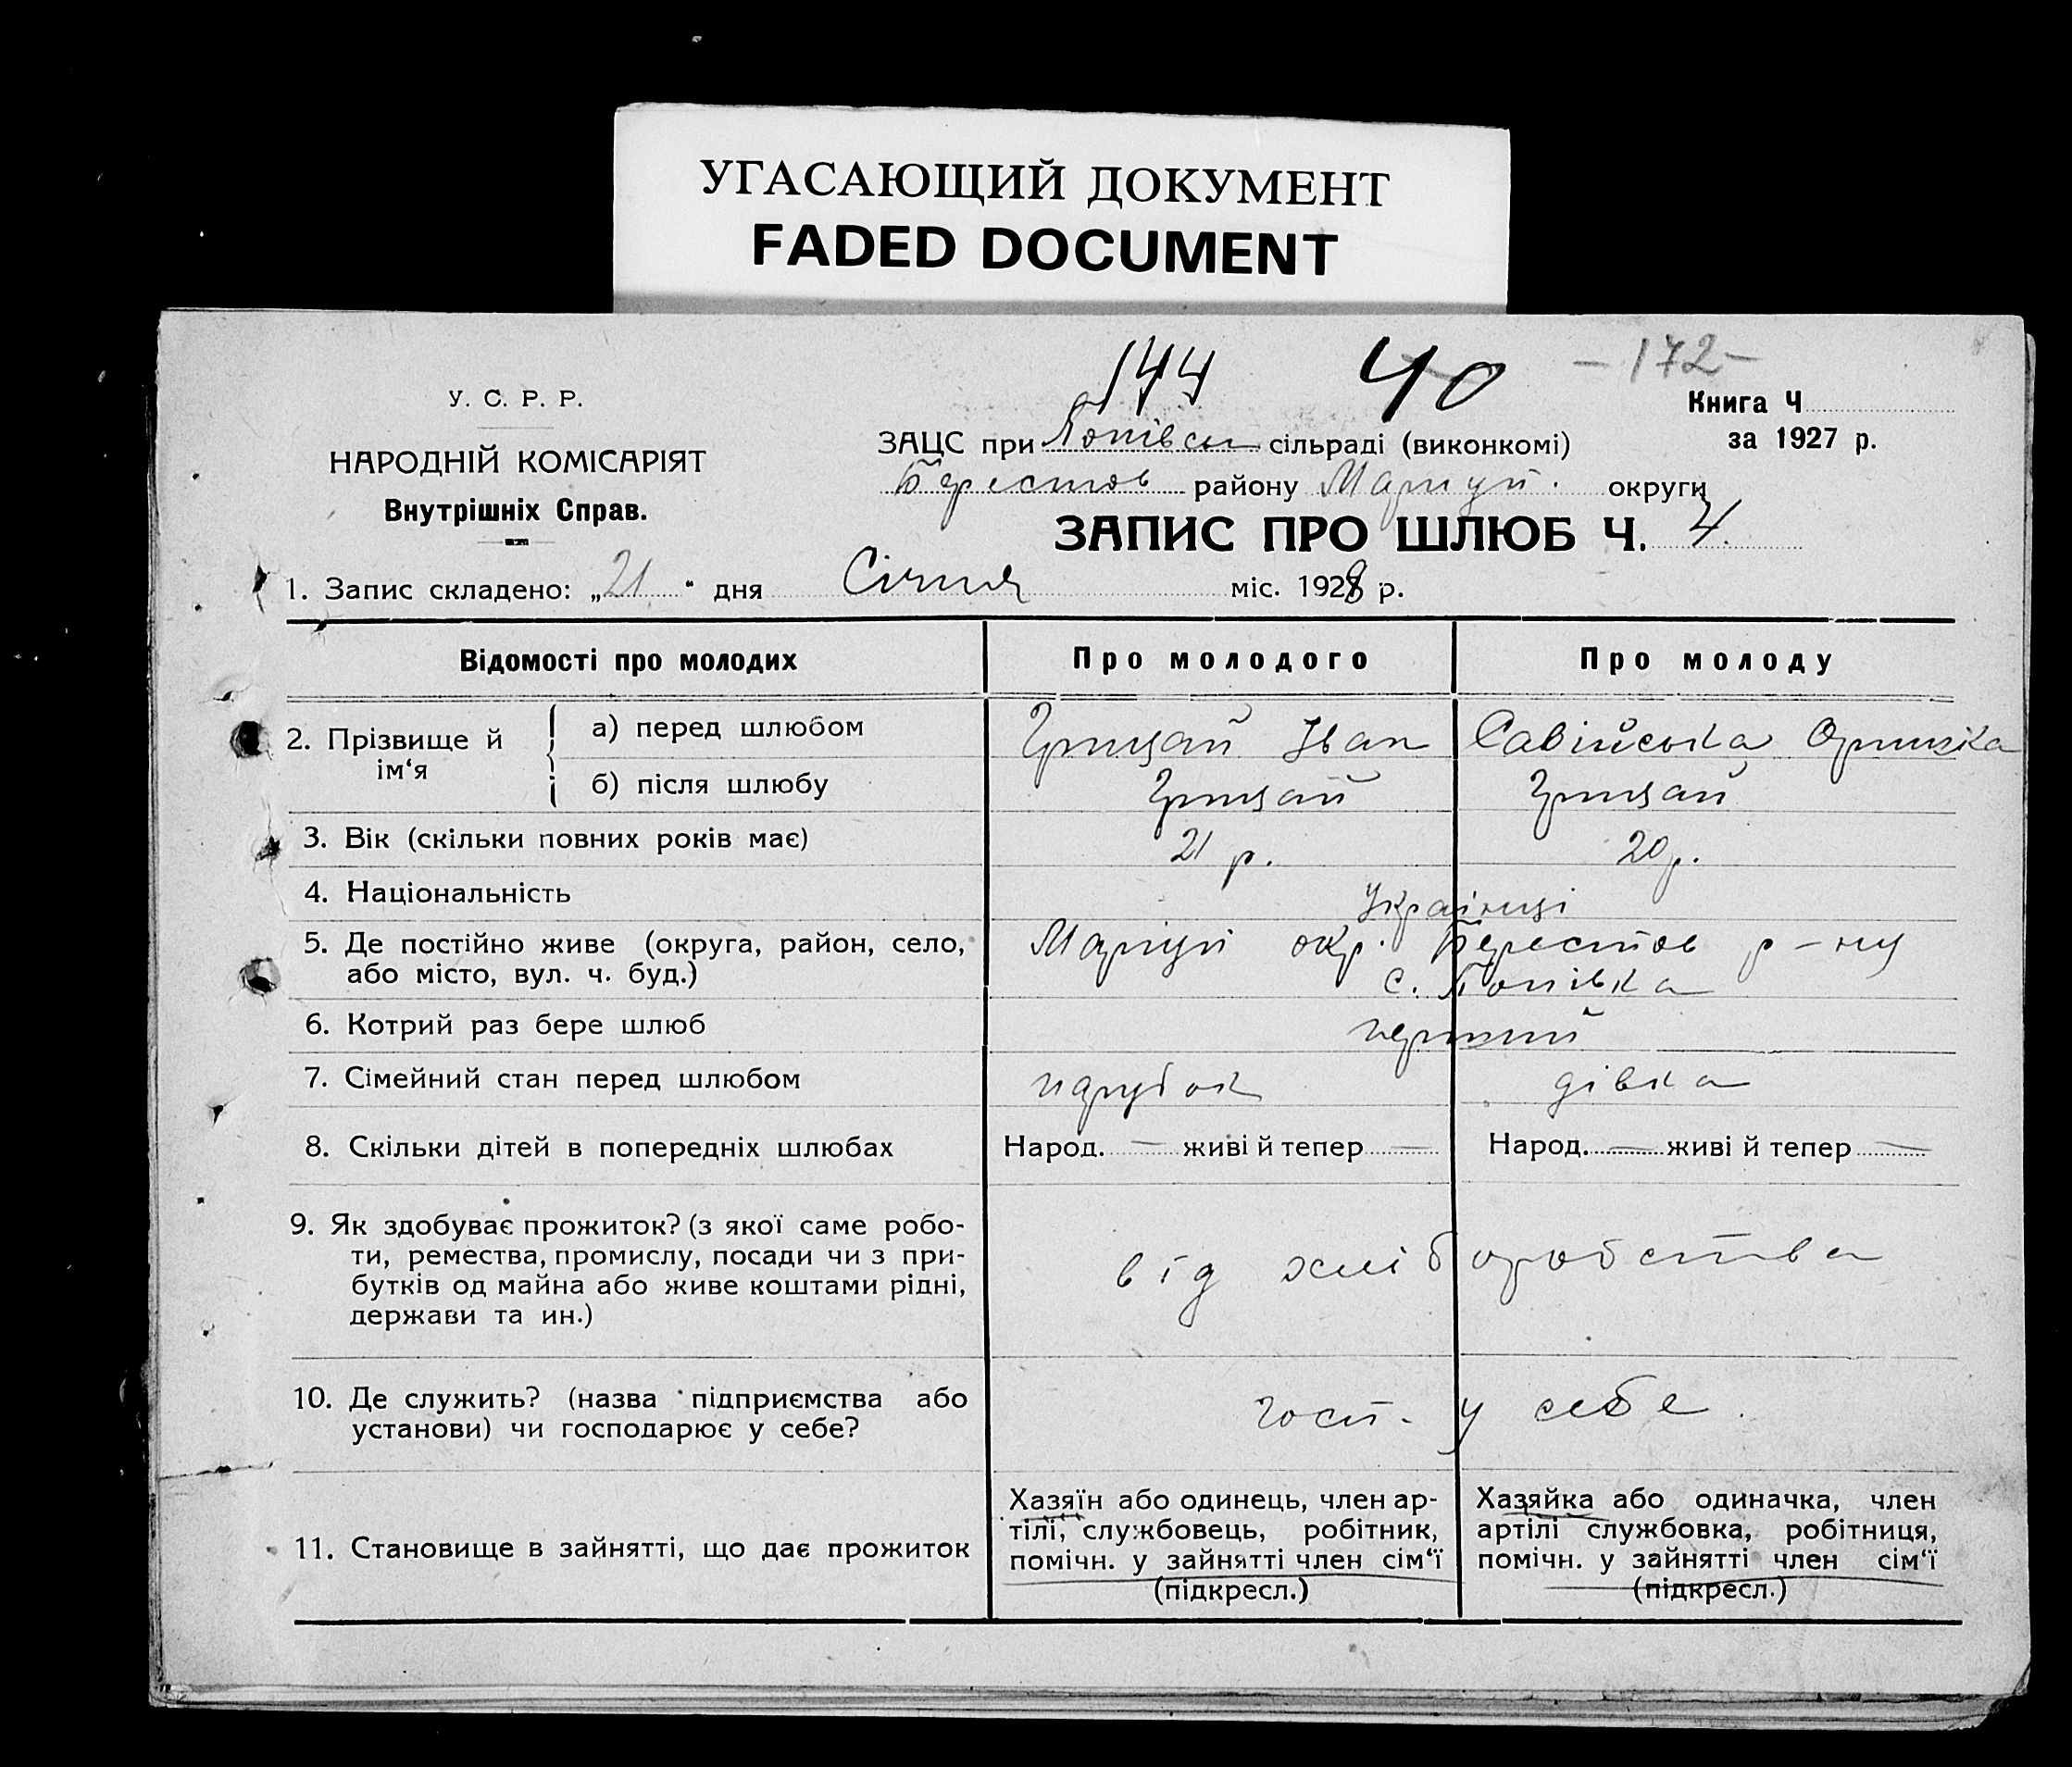 УГАСАЮЩИЙ ДОКУМЕНТ
FADED DOCUMENT
144 40 -172-
У. С. Р. Р.
НАРОДНІЙ КОМІСАРІЯТ
Внутрішніх Справ.
Книга Ч
за 1927 р.
ЗАЦС при Попівськ сільраді (виконкомі)
Берестов району Маріуп. округи
ЗАПИС ПРО ШЛЮБ Ч. 4.
1. Запис складено: „21" дня Січня міс. 1928 р.
Відомості про молодих Про молодого Про молоду
2. Прізвище й ім'я
а) перед шлюбом Грицай Іван Савійська Оришка
б) після шлюбу Грицай Грицай
3. Вік (скільки повних років має) 21 р. 20 р.
4. Національність Українці
5. Де постійно живе (округа, район, село, Маріуп окр. Берестов р-ну
або місто, вул. ч. буд.) с. Попівка
6. Котрий раз бере шлюб перший
7. Сімейний стан перед шлюбом парубок дівка
8. Скільки дітей в попередніх шлюбах Народ. — живі й тепер — Народ. — живі й тепер —
9. Як здобуває прожиток? (з якої саме робо-
ти, ремества, промислу, посади чи з при-
бутків од майна або живе коштами рідні,
держави та ин.)
від хліборобства
10. Де служить? (назва підприємства або
установи) чи господарює у себе?
госп. у себе.
11. Становище в зайнятті, що дає прожиток
Хазяїн або одинець, член ар-
тілі, службовець, робітник,
помічн. у зайнятті член сім'ї
(підкресл.)
Хазяйка або одиначка, член
артілі службовка, робітниця,
помічн. у зайнятті член сім'ї
(підкресл.)